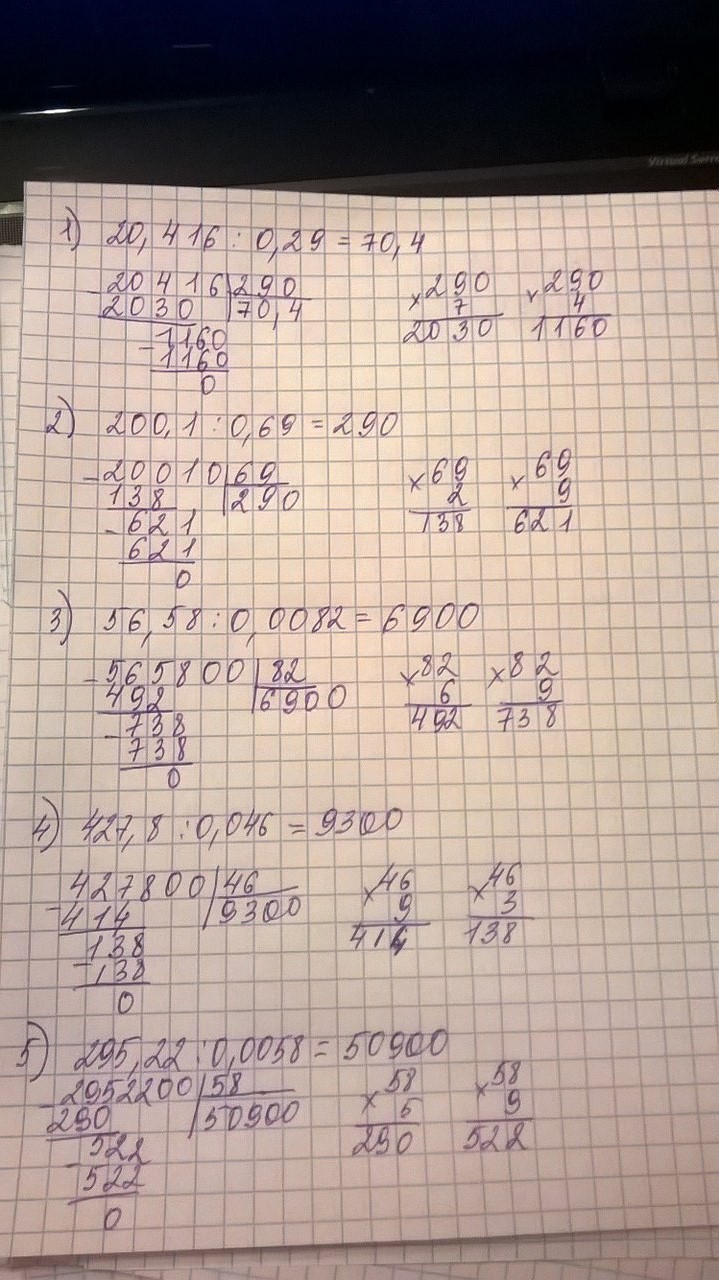 Virtual Surr
1) 20,416 : 0,29 = 70,4
- 20416 | 290 × 290 × 290
2030 | 70,4 7 4
- 1160 2030 1160
1160
0
2) 200,1 : 0,69 = 290
- 20010 | 69 × 69 × 69
138 | 290 2 9
- 621 138 621
621
0
3) 56,58 : 0,0082 = 6900
- 565800 | 82 × 82 × 82
492 | 6900 6 9
- 738 492 738
738
0
4) 427,8 : 0,046 = 9300
- 427800 | 46 × 46 × 46
414 | 9300 9 3
- 138 414 138
138
0
5) 295,22 : 0,0058 = 50900
- 2952200 | 58 × 58 × 58
290 | 50900 5 9
- 522 290 522
522
0